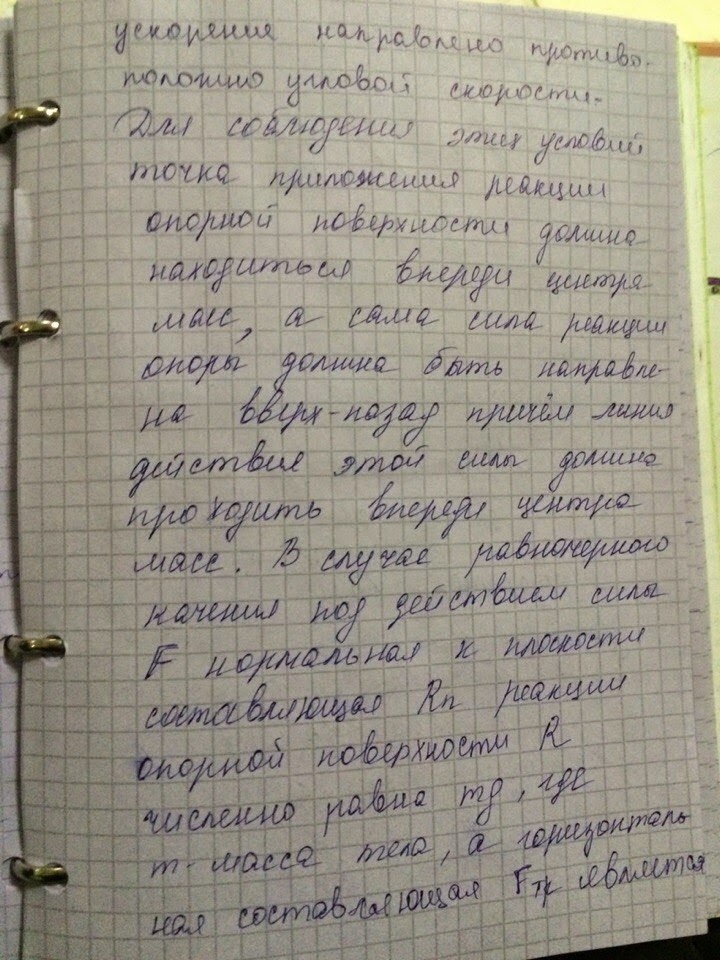 ускорение направлено противо-
положно угловой скорости.
Для соблюдения этих условий
точка приложения реакции
опорной поверхности должна
находиться впереди центра
масс, а сама сила реакции
опоры должна быть направле-
на вверх-назад причём линия
действия этой силы должна
проходить впереди центра
масс. В случае равномерного
качения под действием силы
F нормальная к плоскости
составляющая Rn реакции
опорной поверхности R
численно равна mg, где
m - масса тела, а горизонталь
ная составляющая Fтр является